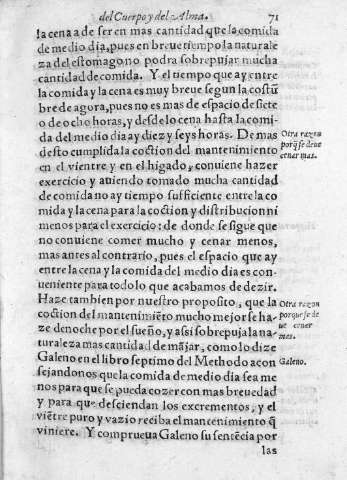 del Cuerpo y del Alma. 71
la cena a de ser en mas cantidad que la comida
de medio dia, pues en breue tiempo la naturale
za del estomago no podra sobrepujar mucha
cantidad de comida. Y el tiempo que ay entre
la comida y la cena es muy breue segun la costũ
bre de agora, pues no es mas de espacio de siete
o de ocho horas, y desde lo cena hasta la comi-
da del medio dia ay diez y seys horas. De mas
desto cumplida la coction del mantenimiento
en el vientre y en el higado, conuiene hazer
exercicio y auiendo tomado mucha cantidad
de comida no ay tiempo sufficiente entre la co
mida y la cena para la coction y distribucion ni
menos para el exercicio: de donde se sigue que
no conuiene comer mucho y cenar menos,
mas antes al contrario, pues el espacio que ay
entre la cena y la comida del medio dia es con-
ueniente para todo lo que acabamos de dezir.
Haze tambien por nuestro proposito, que la
coction del mantenimiẽto mucho mejor se ha-
ze de noche por el sueño, y assi sobrepuja la na-
turaleza mas cantidad de mãjar, como lo dize
Galeno en el libro septimo del Methodo acon
sejandonos que la comida de medio dia sea me
nos para que se pueda cozer con mas breuedad
y para que desciendan los excrementos, y el
viẽtre puro y vazio reciba el mantenimiento q̃
viniere. Y comprueua Galeno su sentẽcia por
las
Otra razon
porq̃ se deue
cenar mas.
Otra razon
porque se de
ue cenar
mas.
Galeno.